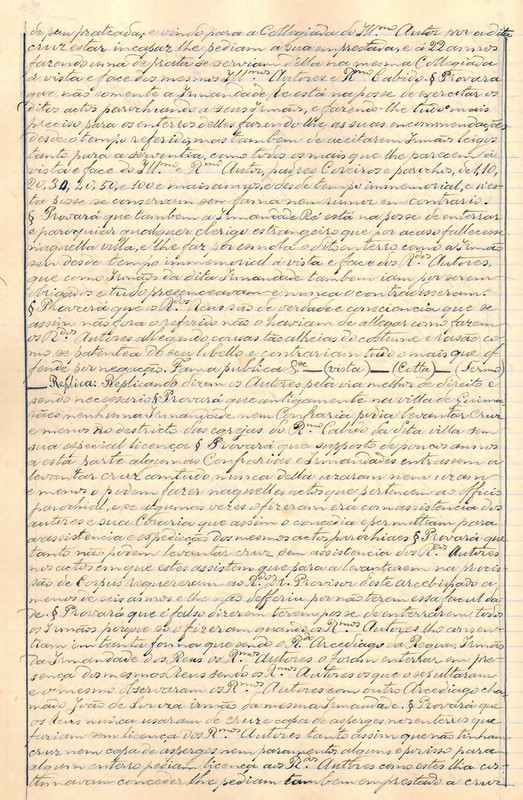 de pau prateada, e vindo para a Collegiada do Ill.mo Autor por a dita
cruz estar incapaz lhe pediam a sua emprestada, e á 22 annos
fazendo uma de prata se serviam della na mesma Collegiada
á vista e face dos mesmos Ill.mos Autores e R.mo Cabido. § Provará
que não somente a Irmandade Ré está na posse de exercitar os
ditos actos parochiando a seus Irmãos, e fazendo lhe tudo o mais
preciso para os enterros delles fazendo lhe as suas encommendações
desde o tempo referido, mas tambem de aceitarem Irmãos leigos
tanto para a serventia, como todos os mais que lhe parecem, á
vista e face do Ill.mo e R.mo Autor, padres Coreiros e parochos, de 1, 10,
20, 30, 20, 50, e 100 e mais annos, e desde tempo immemorial, e nes-
ta posse se conservam sem fama nem rumor em contrario.
§ Provará que tambem a Irmandade Ré está na posse de enterrar
e paroquiar qualquer clerigo estrangeiro que por acaso fallecesse
naquella villa, e lhe faz por esmola o dito enterro como a Irmão
seu desde tempo immemorial á vista e face dos R.dos Autores,
que como Irmãos da dita Irmandade tambem iam por serem
obrigados e tudo presenceavam e nunca o contradisseram.
§ Provará que os R.dos Reus são de verdade e consciencia que se
assim não fora o referido não o haviam de allegar como fazem
os R.dos Autores allegando cousas tão alheias do costume e Rasão co-
mo se patentea do seu libello e contrariam tudo o mais que of-
fende por negação. Fama publica &ce — (vista) — (Cotta) — (Termo)
— Replica: Replicando dizem os Autores pela via melhor de direito e
sendo necessario § Provará que antigamente na villa de Guima-
rães nenhuma Irmandade nem Confraria podia levantar cruz
e menos no destricto das egrejas do R.mo Cabido da dita villa sem
sua especial licença § Provará que supposto de poucos annos
a esta parte algumas Confrarias e Irmandades entrassem a
levantar cruz comtudo nunca della usaram nem usam
e menos o podem fazer naquelles actos que pertencem ao officio
parochial, e se algumas vezes o fizeram era com assistencia dos
autores e sua Coraria que assim o concedia e permittiam para
a assistencia e expedicção dos mesmos actos parochiaes § Provará que
tanto não podem levantar cruz sem assistencia dos R.dos Autores
nos actos em que estes assistem que para a levantarem na procis-
são de Corpus requereram ao R.do Dr. Provisor deste arcebispado a
menos de seis annos e lhe não defferiu por não terem essa faculda-
de. § Provará que é falso dizerem terem posse de enterrarem todos
os Irmãos porque só o fizeram quando os R.mos Autores lho consen-
tiam in tanta forma que sendo o R.do Arcediago da Regua Irmão
da Irmandade dos Reus os R.mos Autores o foram enterrar em pre-
sença dos mesmos Reus sendo os R.mos Autores os que o sepultaram
e o mesmo observaram os R.mos Autores com outro Arcediago cha-
mado João de Souza irmão da mesma Irmandade. § Provará que
os Reus nunca usaram de cruz e capa de asperges nos enterros que
faziam sem licença dos R.mos Autores tanto assim que não tinham
cruz nem capa de asperges nem paramentos alguns e por isso para
algum enterro pediam licença aos R.dos Autores como estes lha cos-
tumavam conceder lhe pediam tambem emprestado a cruz